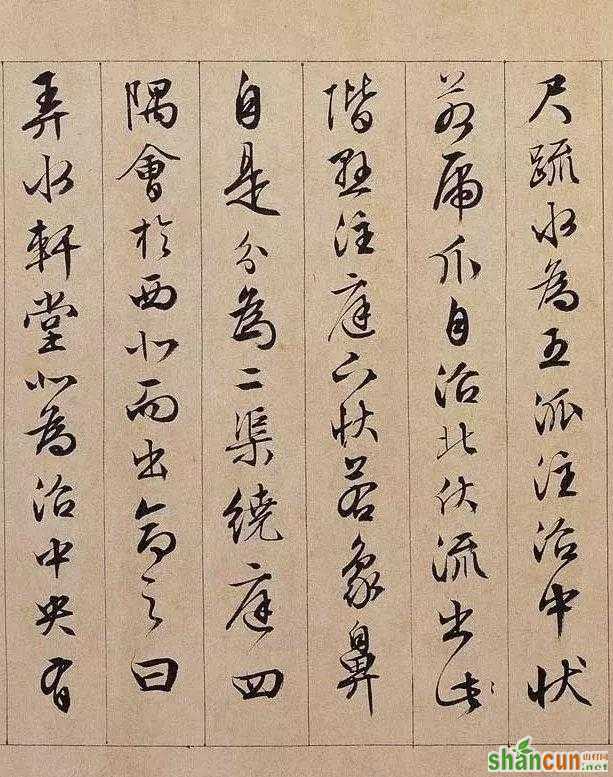 尺疏水為五派注沼中狀
若虎爪自沼北伏流出北
階懸注庭下狀若象鼻
自是分為二渠繞庭四
隅會於西北而出命之曰
弄水軒堂北為沼中央有
shancun
山村网
.net